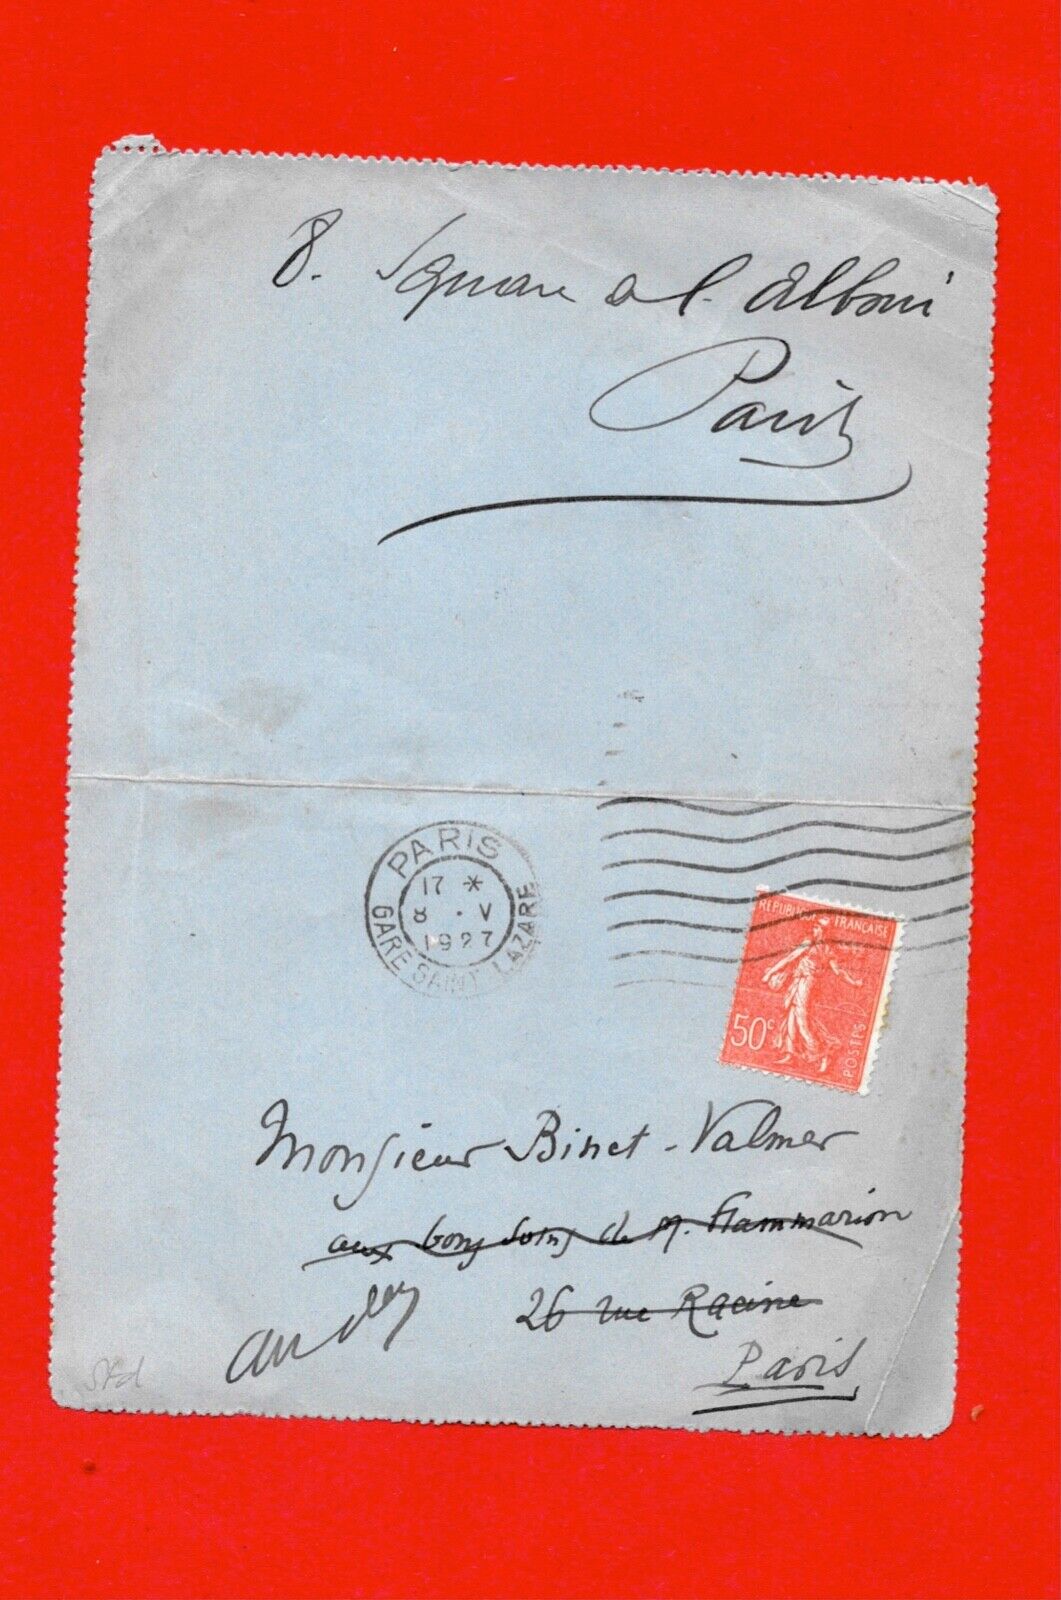 8. Square de l'Alboni
Paris
PARIS
17 *
8 . V
1927
GARE SAINT LAZARE
REPUBLIQUE FRANÇAISE
50c
POSTES
Monsieur Binet-Valmer
aux bons soins de M. Flammarion
26 rue Racine
Paris